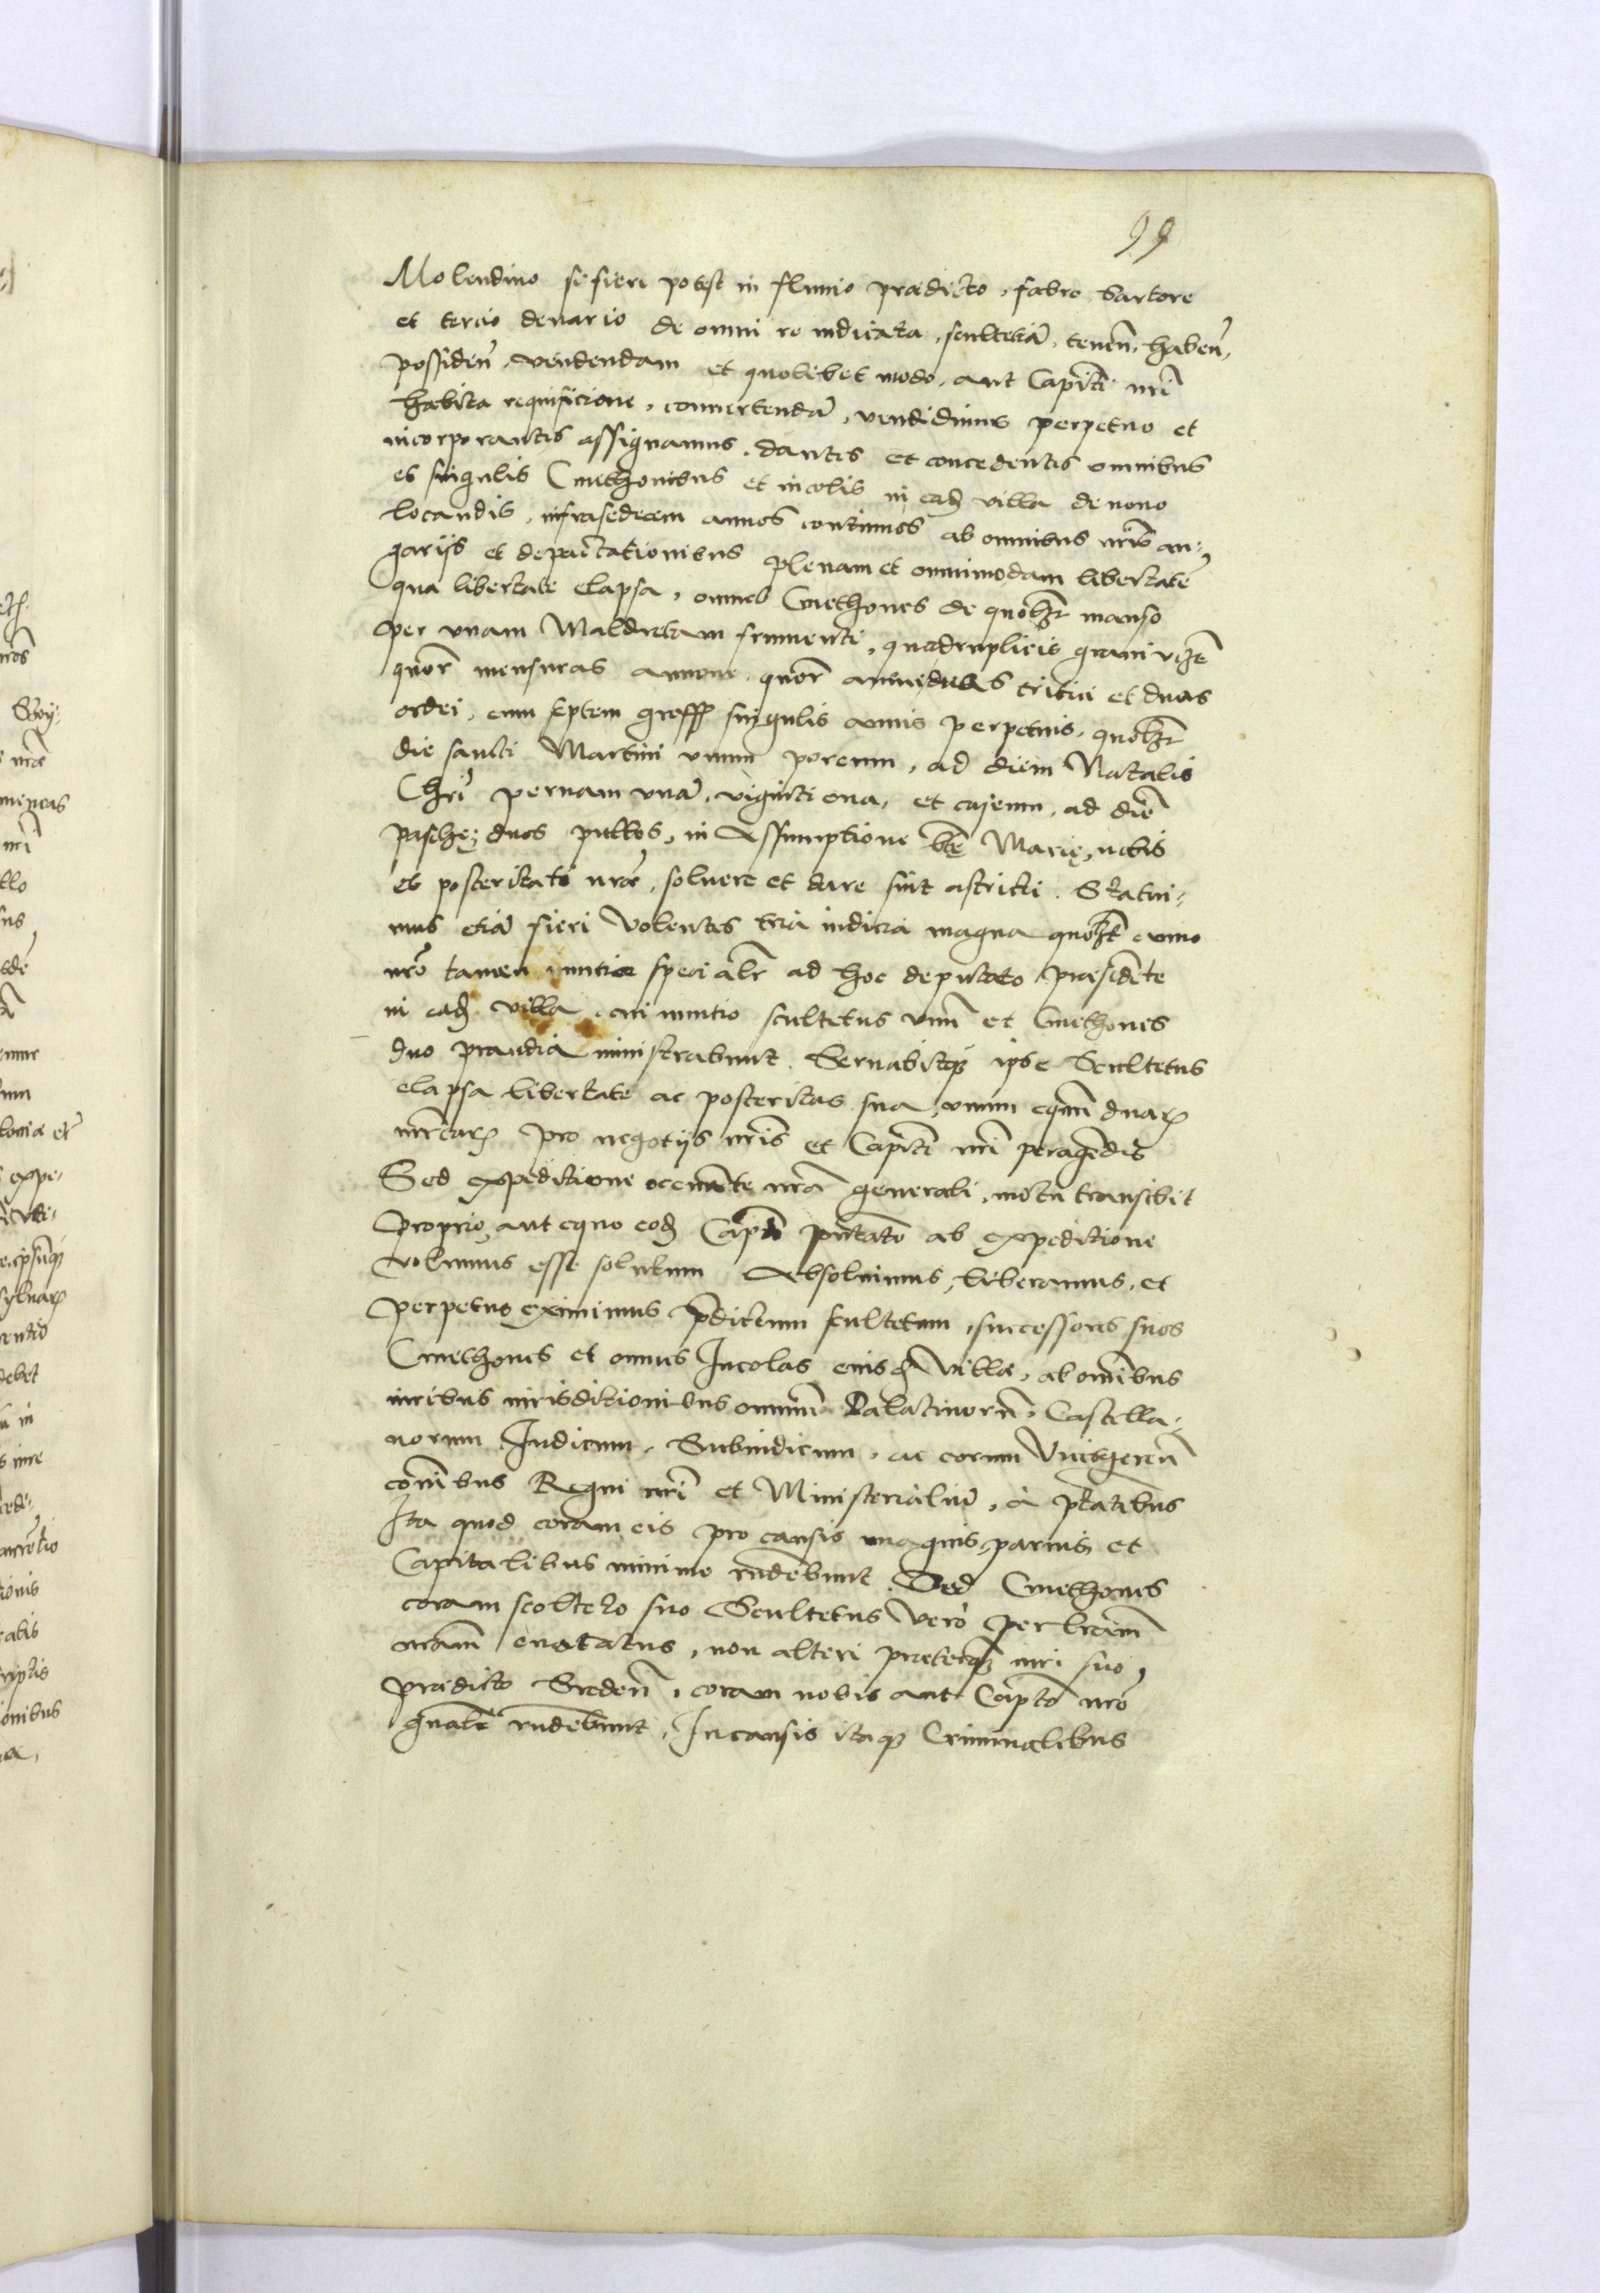 99
Molendino si fieri potest in fluuio praedicto, fabro sartore
et tercio denario de omni re iudicata, scultetiā, tenen̄, haben̄,
possiden̄, vendendam et quolibet modo, aut Capitĩ nr̃i
habita requisicione, conuertendā, vendidimus perpetuo et
incorporantes assignamus, dantes et concedentes omnibus
et singulis Cmethonibus et incolis in eadẽ villa de nouo
locandis, infra sedecem annos continuos ab omnibus nr̃is an-
garijs et depactationibus plenam et omnimodam libertatẽ
qua libertate elapsa, omnes Cmethones de quoĩtr manso
per vnam Maldratam frumenti, quadruplicis grani vizt
quor̃ mensuras annone quor̃ auene duas tritici et duas
ordei, cum septem gross̃ singulis annis perpetuis, quoĩtr
die sancti Martini vnum porcum, ad diem Natalis
Chrĩ pernam vnā, viginti oua, et caseum, ad diẽ
Paschę, duos pullos, in Assumptione btẽ Marię, nobis
et posteritati nr̃ae, soluere et dare sint astricti. Statui-
mus etiā fieri Volentes tria iudicia magna quoĩt anno
nr̃o tamen nuntio specialr̃ ad hoc deputato praesidẽte
in eadẽ villa, cui nuntio scultetus vnũ et Cmethones
duo prandia ministrabunt. Seruabitqz ipse Scultetus
elapsa libertate ac posteritas sua, vnum equũ duarꝝ
mr̃carꝝ pro negotijs nr̃is et Capitĩ nr̃i peragẽdis
Sed expeditione occurrẽte nr̃a generali, motu transibit
proprio, aut equo eodẽ Capitõ pñtato ab expeditione
volumus esse solutum Absoluimus, liberamus, et
perpetuo eximimus p̃dictum scultetum, successores suos
Cmethones et omnes Incolas eiusdẽ Villae, ab oĩnibus
iuribus iurisditionibus omniũ Palatinorũ, Castella-
norum Iudicum, Subiudicum, ac eorum Vicesgerẽn
oĩnibus Regni nr̃i et Ministerialiũ, à ptãtibus
Ita quod coram eis pro causis magnis, paruis et
Capitalibus minime rñdebunt. Sed Cmethones
coram scolteto suo Scultetus vero per lr̃am
nr̃am euocatus, non alteri praeterqz iuri suo,
praedicto Sreden̄, coram nobis aut Capitõ nr̃o
gñalĩ rñdebunt, In causis itaqz Criminalibus